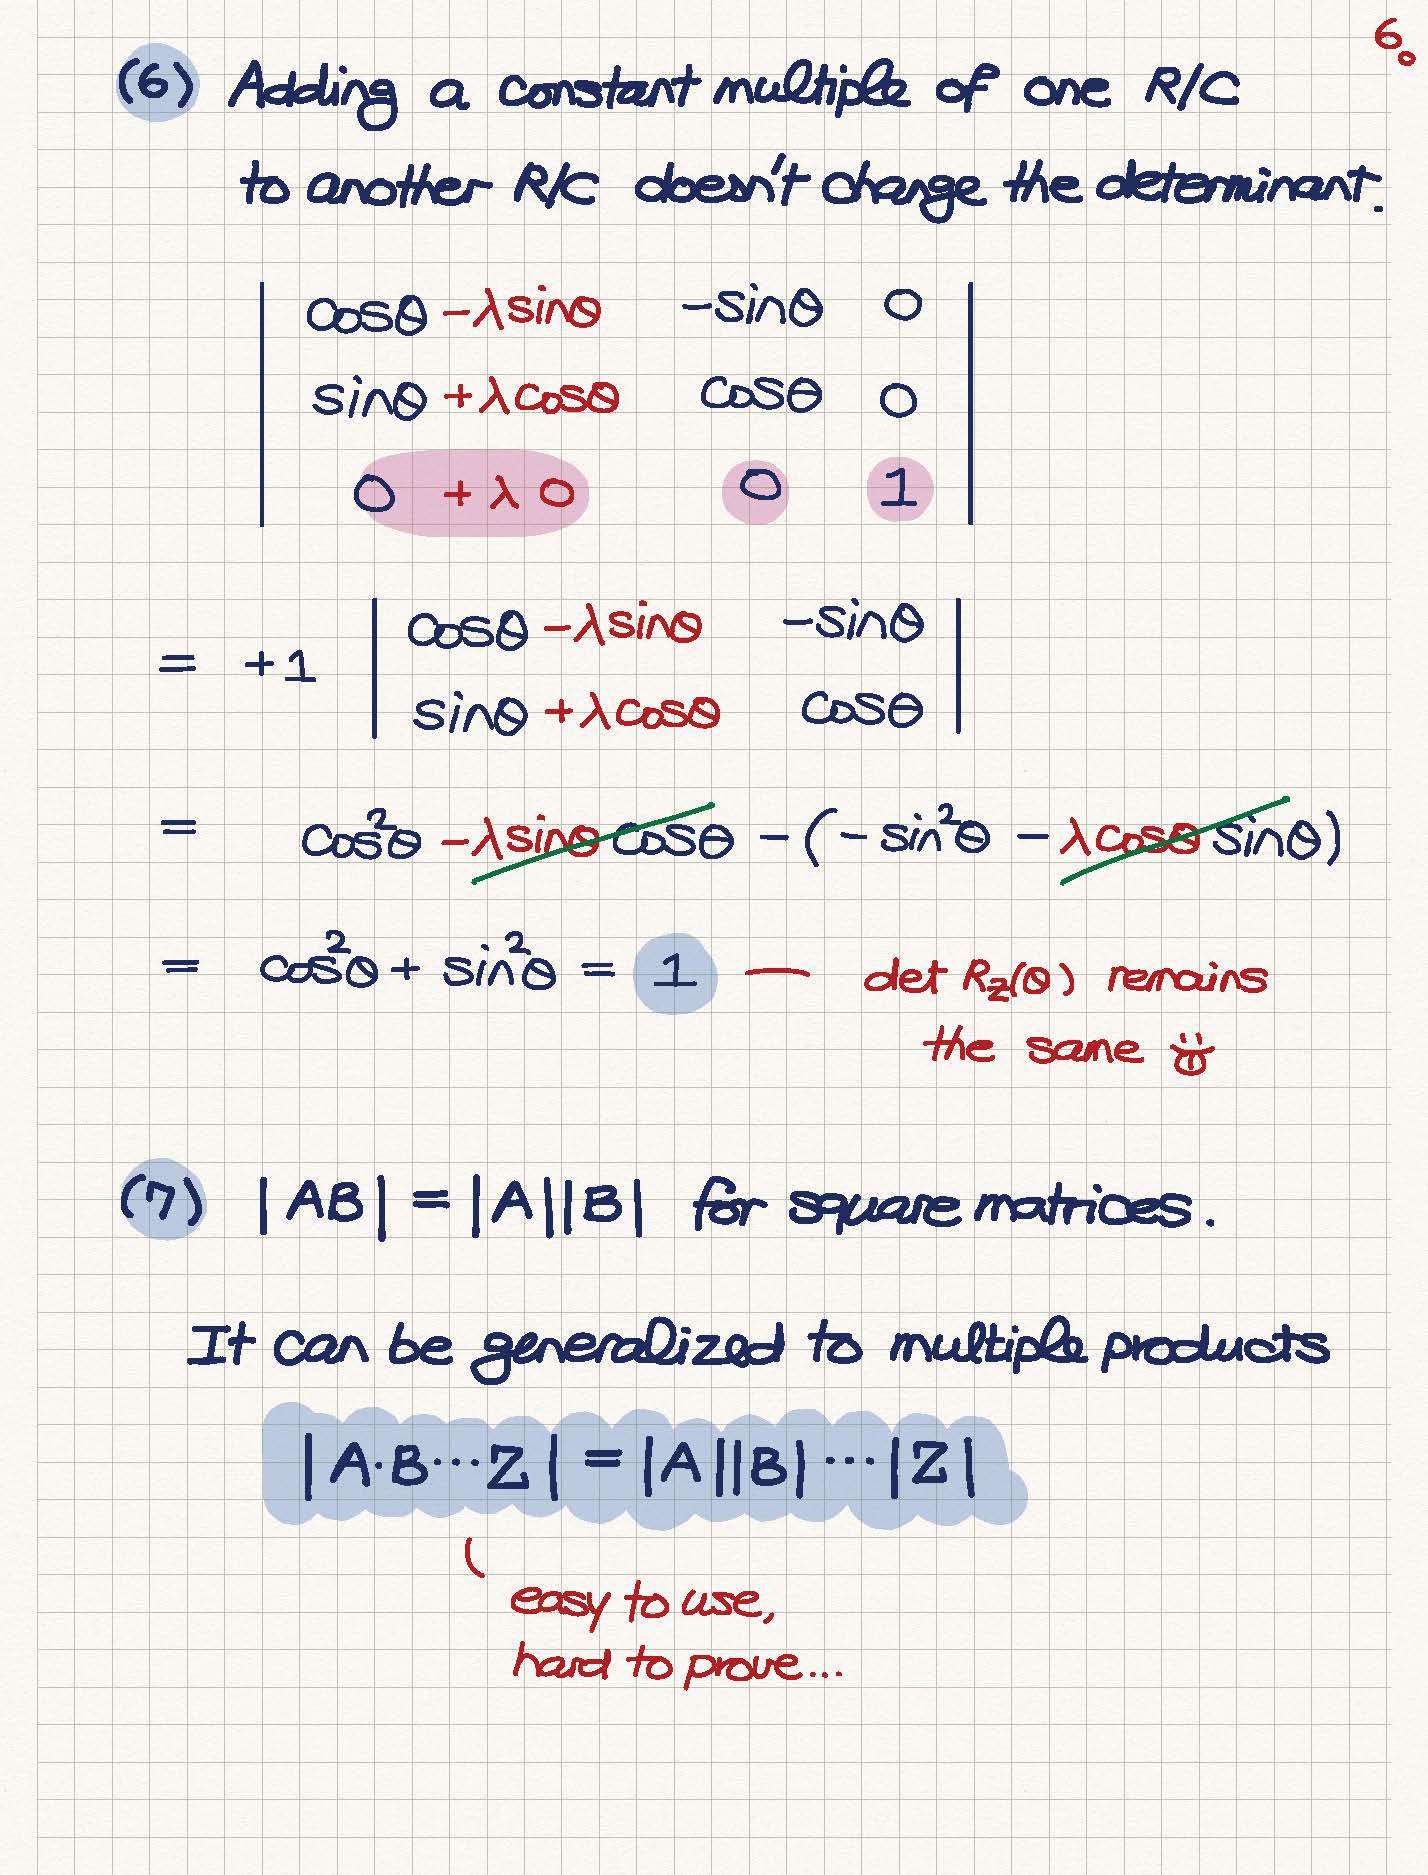 6.
(6) Adding a constant multiple of one R/C
to another R/C doesn't change the determinant.
| cosθ -λsinθ -sinθ 0 |
| sinθ +λcosθ cosθ 0 |
| 0 +λ0 0 1 |
= +1 | cosθ -λsinθ -sinθ |
| sinθ +λcosθ cosθ |
= cos²θ -λsinθ cosθ - (- sin²θ - λcosθ sinθ)
= cos²θ + sin²θ = 1 — det R_z(θ) remains
the same
(7) |AB| = |A||B| for square matrices.
It can be generalized to multiple products
|A·B···Z| = |A||B|···|Z|
easy to use,
hard to prove...